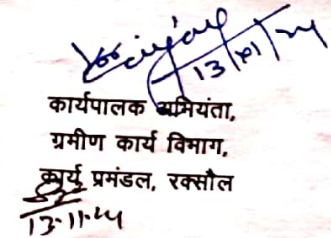 13/11/24
कार्यपालक अभियंता,
ग्रामीण कार्य विभाग,
कार्य प्रमंडल, रक्सौल
13.11.24